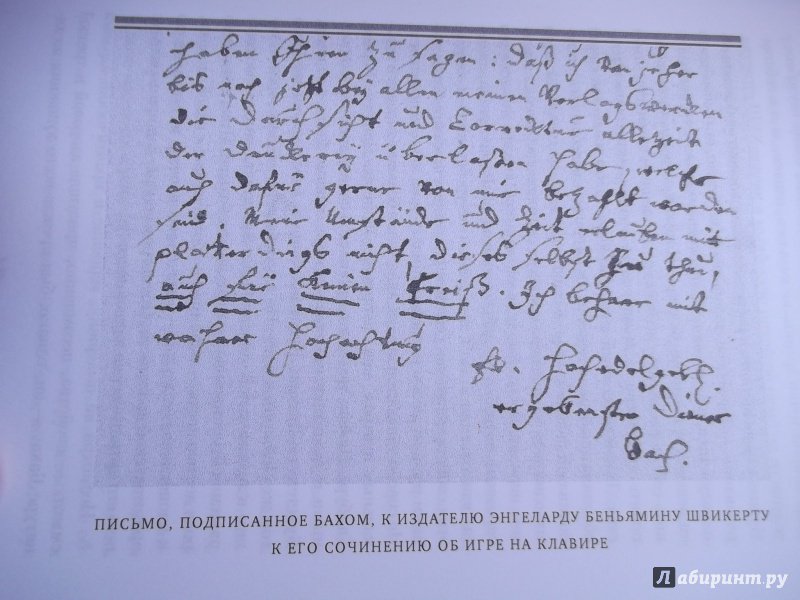 haben Ihnen zu sagen: daß ich von jeher
bis noch jetzt bey allen meinen Verlagswercken
die Durchsicht und Correcktur allezeit
der überlassen habe, welche
auch dafür gerne von mir bezahlt worden
sind. Meine Umstände und Zeit erlauben mir
platterdings nicht, dieses selbst zu thun,
auch für keinen Preiß. Ich beharre mit
wahrer Hochachtung
Ew. Hochedelgeb.
ergebenster Diener
Bach.
ПИСЬМО, ПОДПИСАННОЕ БАХОМ, К ИЗДАТЕЛЮ ЭНГЕЛАРДУ БЕНЬЯМИНУ ШВИКЕРТУ
К ЕГО СОЧИНЕНИЮ ОБ ИГРЕ НА КЛАВИРЕ
Лабиринт.ру